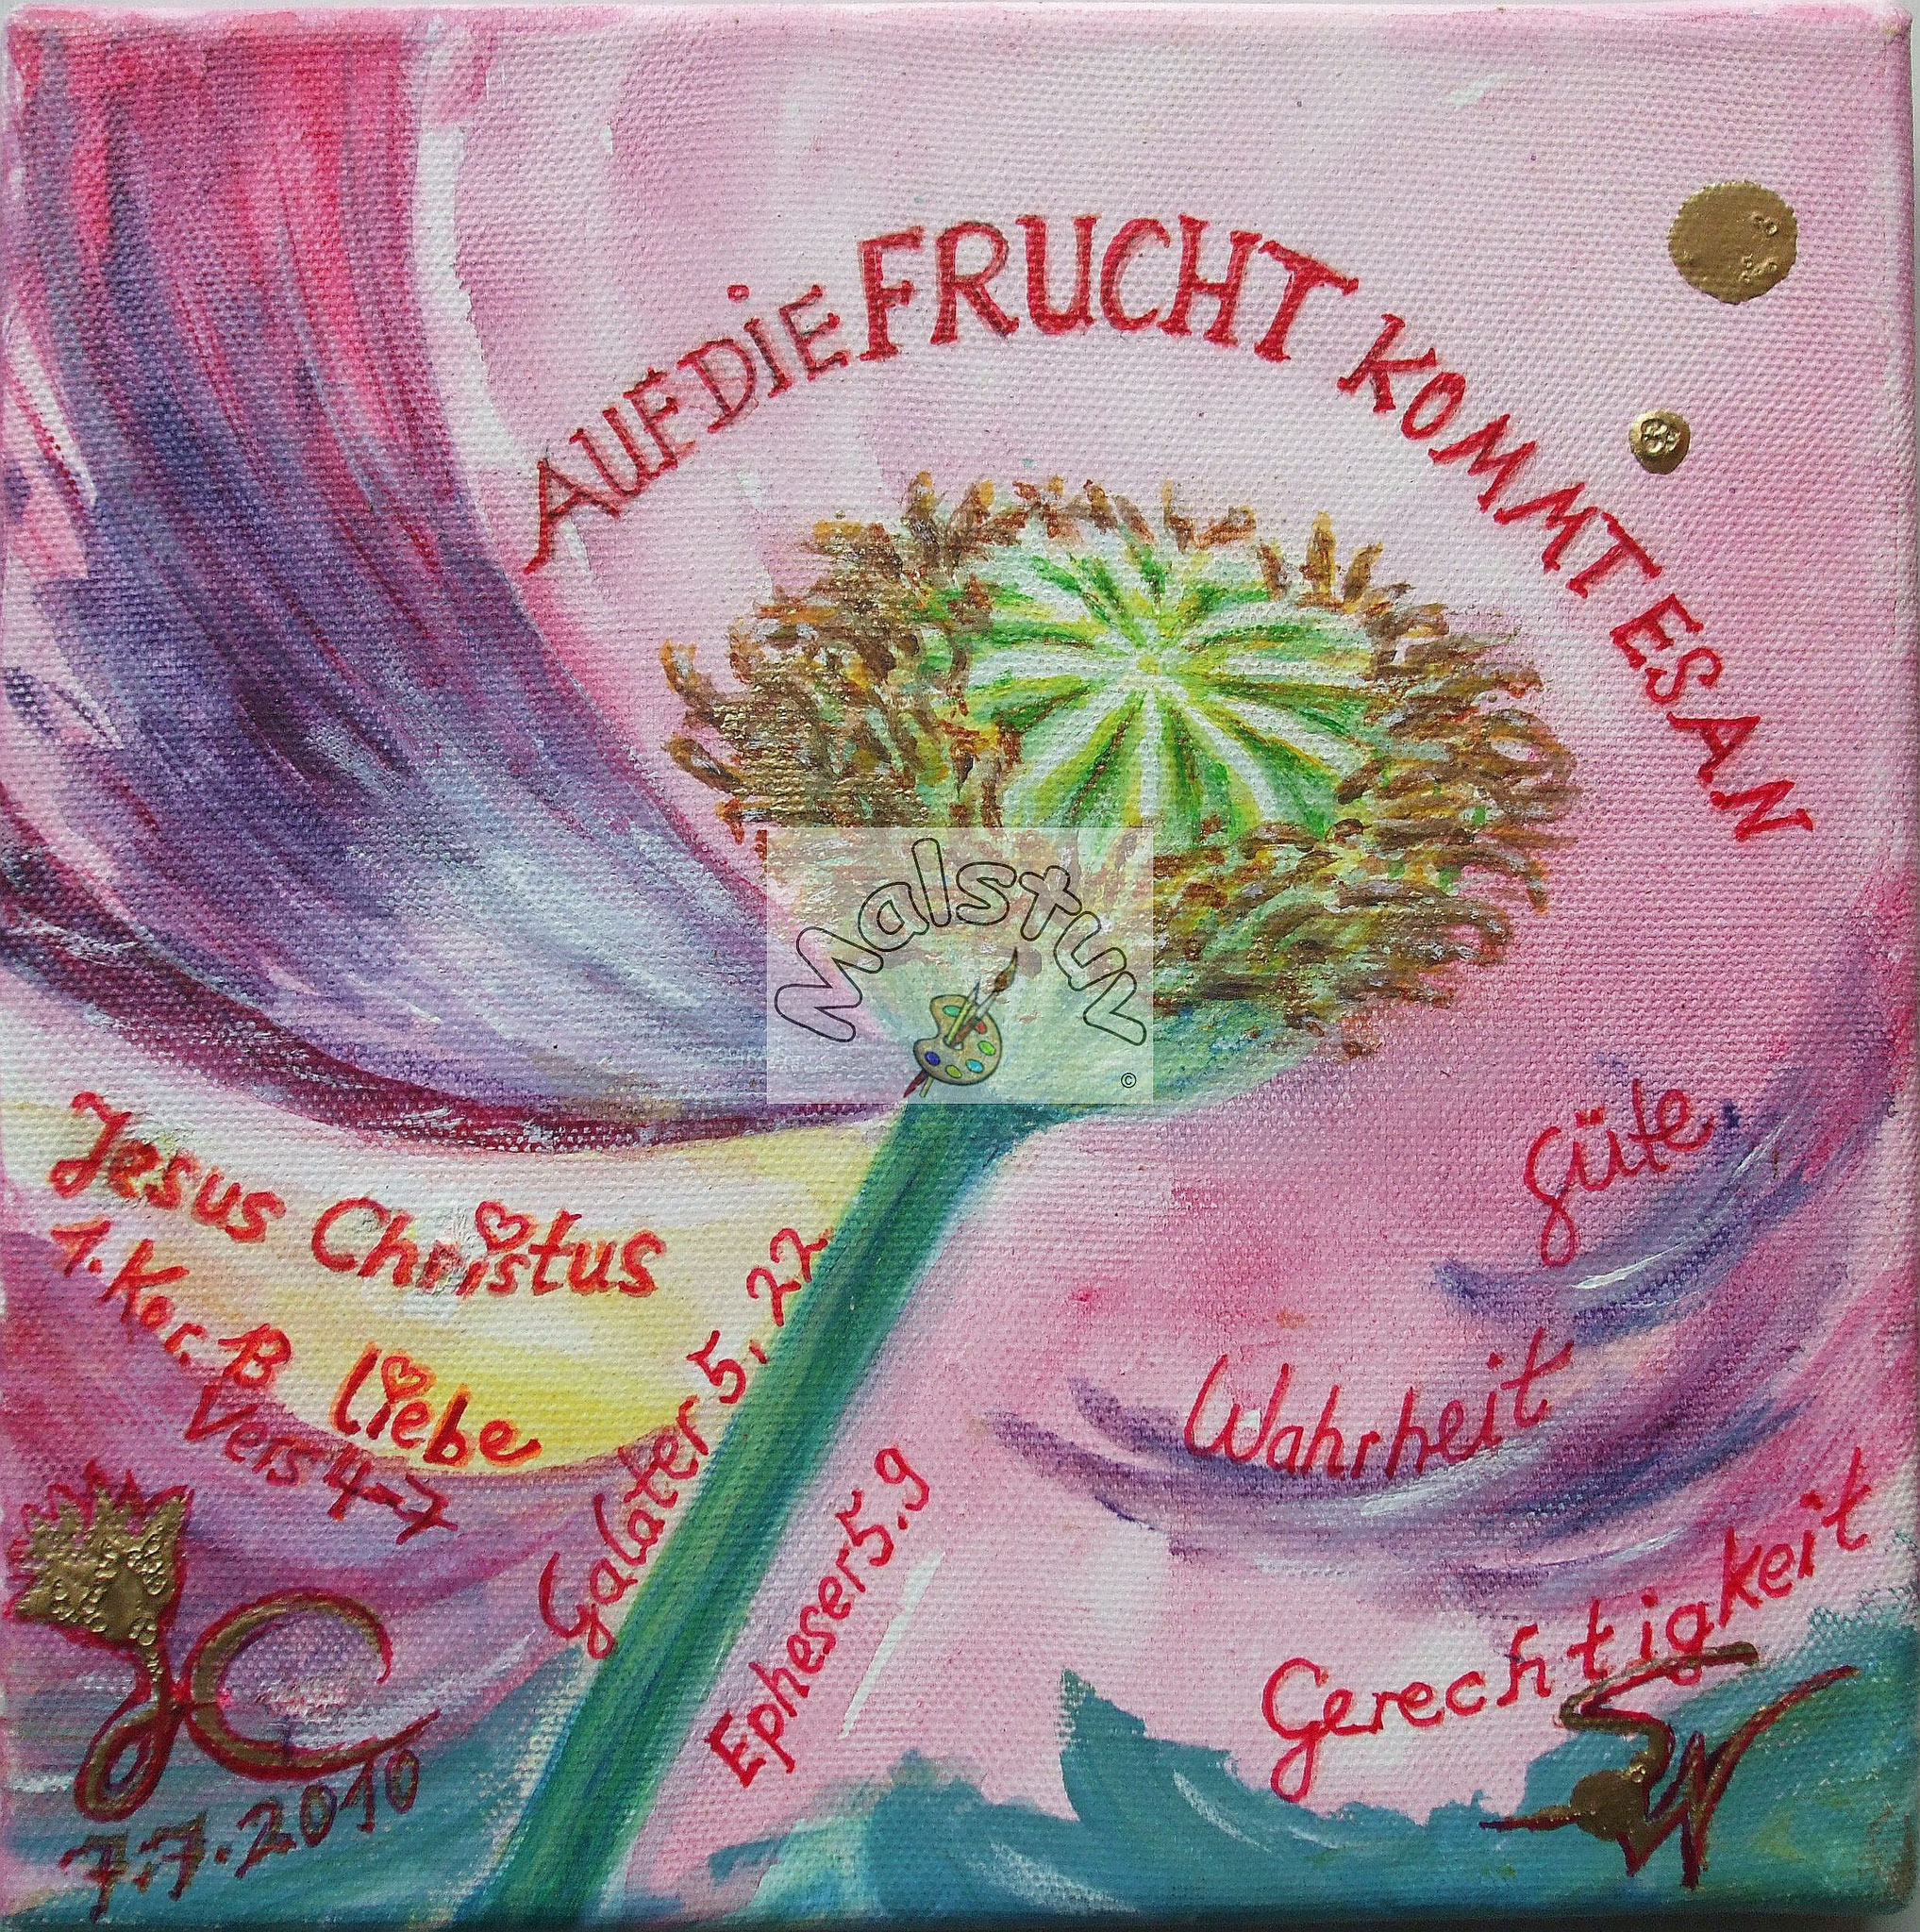 AUF DiE FRUCHT KOMMT ES AN
Malstuv
©
Jesus Christus
1. Kor. 13 liebe
Vers 4-7
Galater 5, 22
Epheser 5.9
Güte
Wahrheit
Gerechtigkeit
JC
7.7.2010